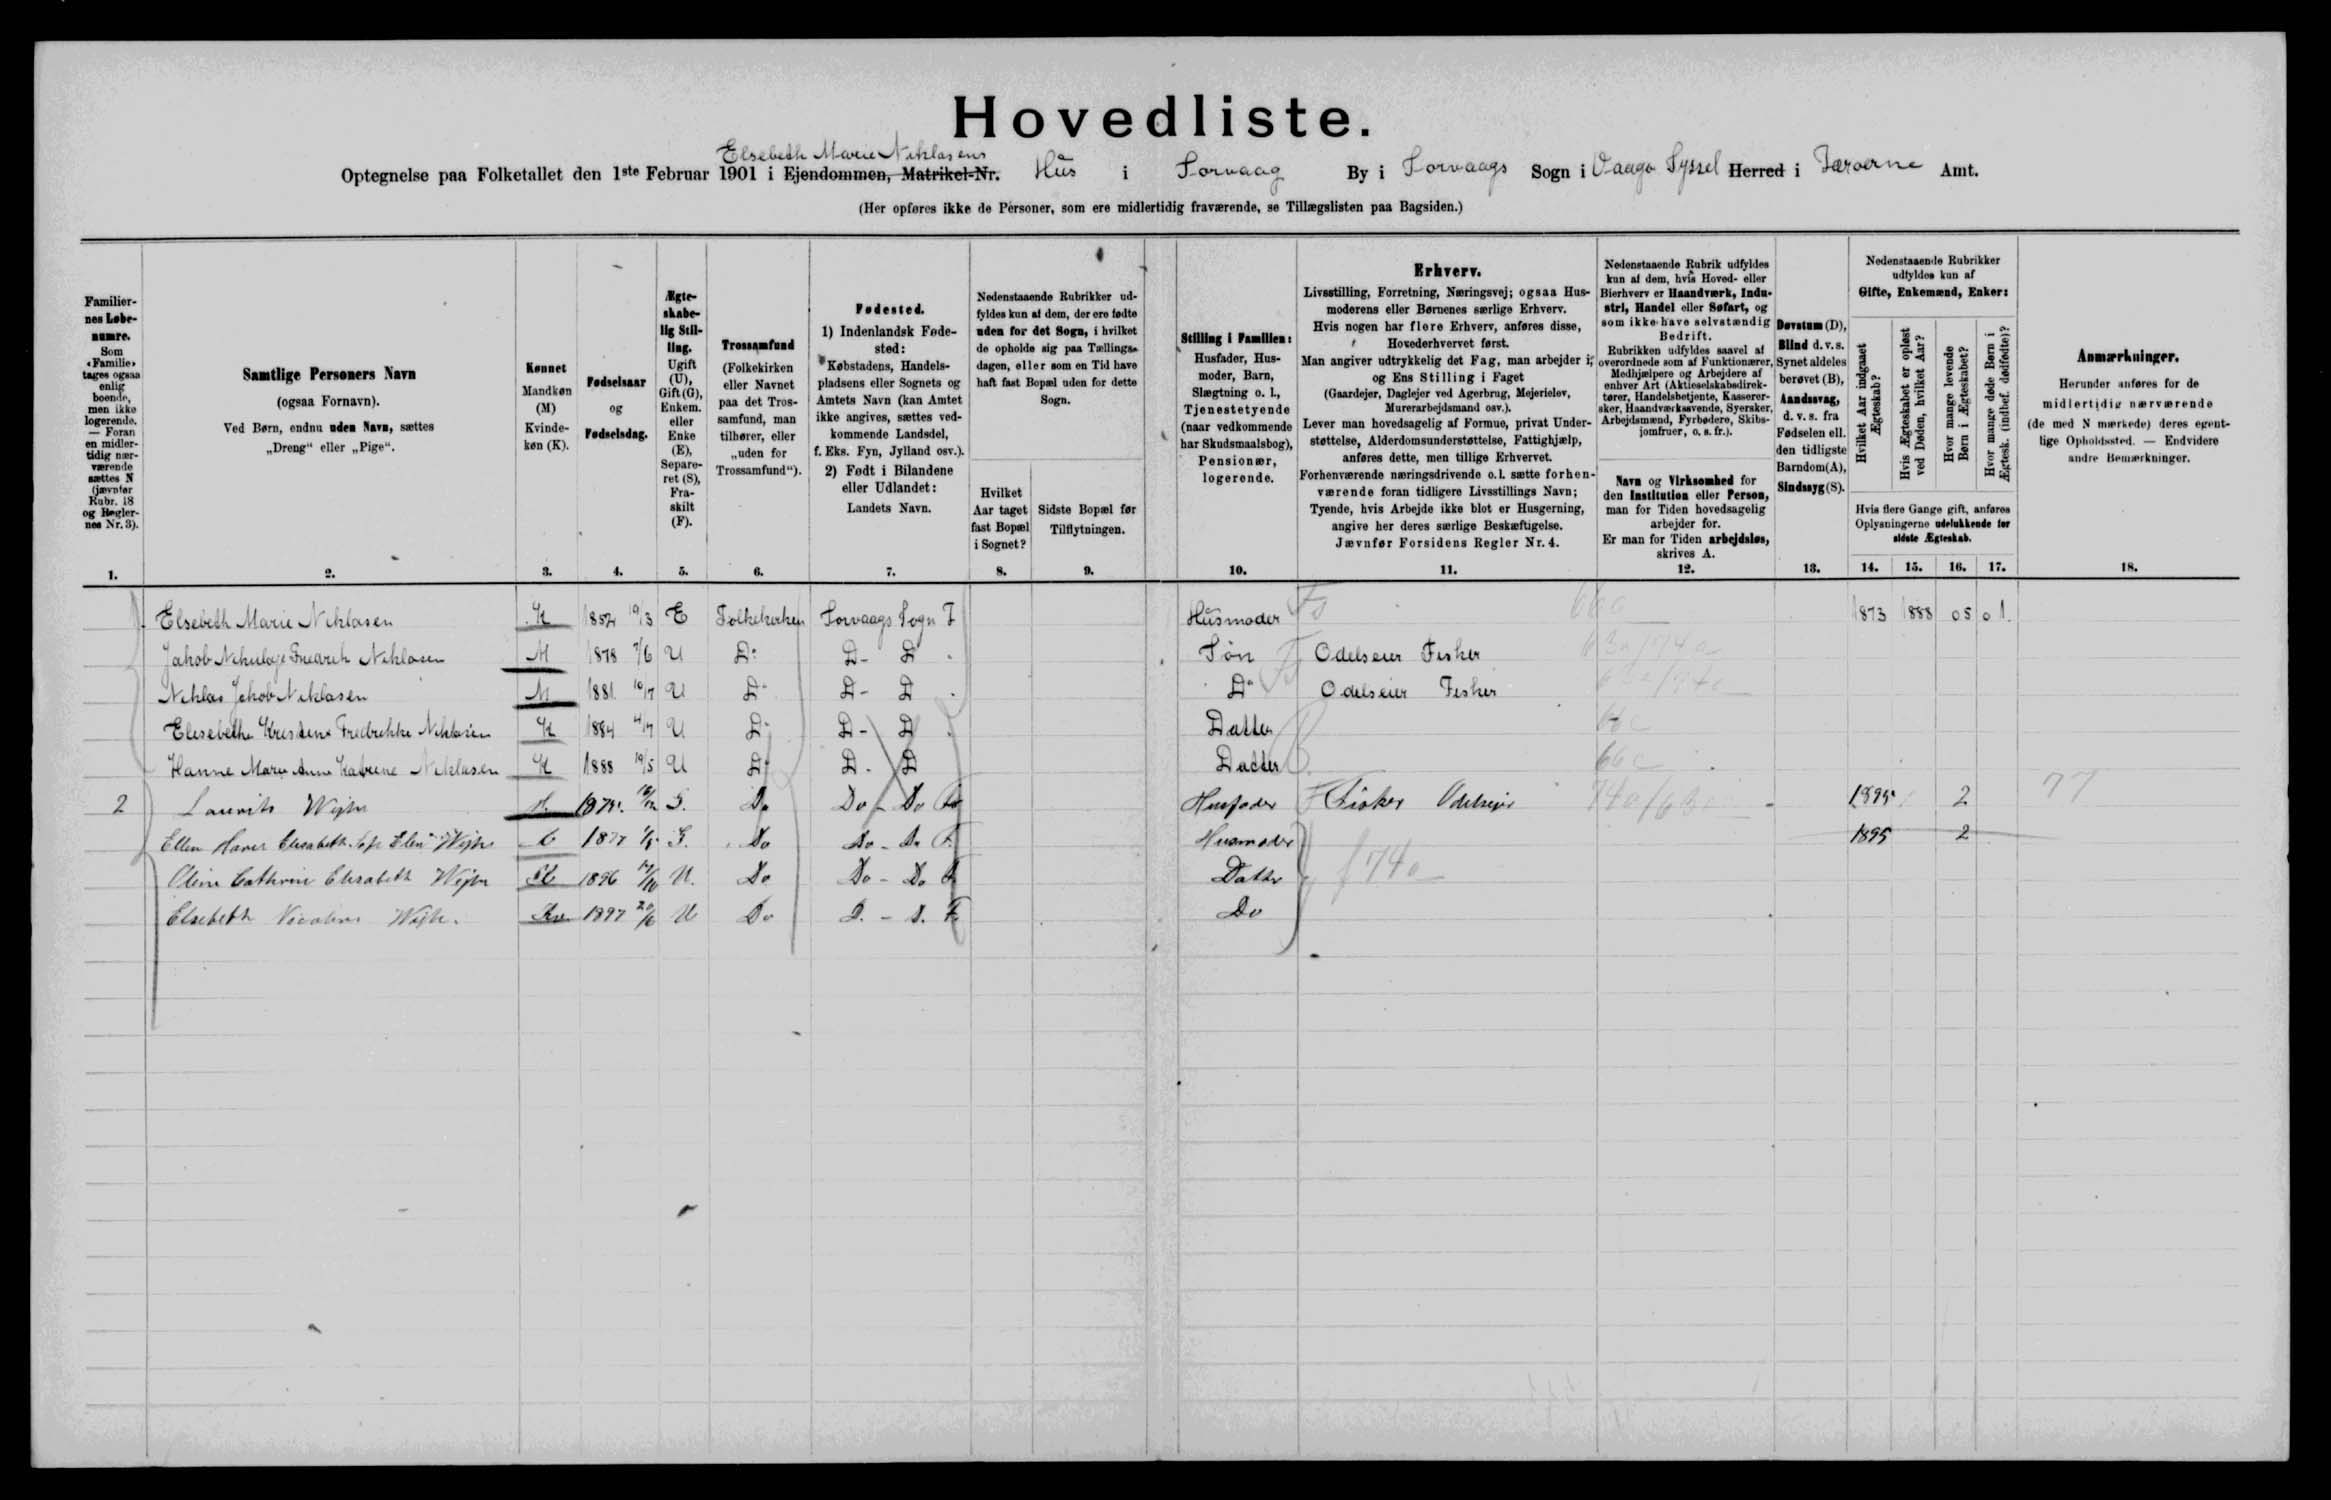 Hovedliste.
Elsebeth Marie Niklasens
Optegnelse paa Folketallet den 1ste Februar 1901 i Ejendommen, Matrikel-Nr. Hus i Sorvaag By i Sorvaags Sogn i Vaagø Syssel Herred i Færøerne Amt.
(Her opføres ikke de Personer, som ere midlertidig fraværende, se Tillægslisten paa Bagsiden.)
Familiernes Løbenumre.
Som «Familie» tages ogsaa enlig boende, men ikke logerende. — Foran en midlertidig nærværende sættes N (jævnfør Rubr. 18 og Reglernes Nr. 3).
1.
Samtlige Personers Navn
(ogsaa Fornavn).
Ved Børn, endnu uden Navn, sættes
„Dreng“ eller „Pige“.
2.
Kønnet
Mandkøn (M) Kvindekøn (K).
3.
Fødselsaar
og
Fødselsdag.
4.
Ægteskabelig Stilling.
Ugift (U), Gift (G), Enkem. eller Enke (E), Separeret (S), Fraskilt (F).
5.
Trossamfund
(Folkekirken eller Navnet paa det Trossamfund, man tilhører, eller „uden for Trossamfund“).
6.
Fødested.
1) Indenlandsk Fødested:
Købstadens, Handelspladsens eller Sognets og Amtets Navn (kan Amtet ikke angives, sættes vedkommende Landsdel, f. Eks. Fyn, Jylland osv.).
2) Født i Bilandene eller Udlandet:
Landets Navn.
7.
Nedenstaaende Rubrikker udfyldes kun af dem, der ere fødte uden for det Sogn, i hvilket de opholde sig paa Tællingsdagen, eller som en Tid have haft fast Bopæl uden for dette Sogn.
Hvilket Aar taget fast Bopæl i Sognet?
8.
Sidste Bopæl før Tilflytningen.
9.
Stilling i Familien:
Husfader, Husmoder, Barn, Slægtning o. l., Tjenestetyende (naar vedkommende har Skudsmaalsbog), Pensionær, logerende.
10.
Erhverv.
Livsstilling, Forretning, Næringsvej; ogsaa Husmoderens eller Børnenes særlige Erhverv.
Hvis nogen har flere Erhverv, anføres disse, Hovederhvervet først.
Man angiver udtrykkelig det Fag, man arbejder i, og Ens Stilling i Faget
(Gaardejer, Daglejer ved Agerbrug, Mejerielev, Murerarbejdsmand osv.).
Lever man hovedsagelig af Formue, privat Understøttelse, Alderdomsunderstøttelse, Fattighjælp, anføres dette, men tillige Erhvervet.
Forhenværende næringsdrivende o. l. sætte forhenværende foran tidligere Livsstillings Navn;
Tyende, hvis Arbejde ikke blot er Husgerning, angive her deres særlige Beskæftigelse.
Jævnfør Forsidens Regler Nr. 4.
11.
Nedenstaaende Rubrik udfyldes kun af dem, hvis Hoved- eller Bierhverv er Haandværk, Industri, Handel eller Søfart, og som ikke have selvstændig Bedrift.
Rubrikken udfyldes saavel af overordnede som af Funktionærer, Medhjælpere og Arbejdere af enhver Art (Aktieselskabsdirektører, Handelsbetjente, Kasserersker, Haandværkssvende, Syersker, Arbejdsmænd, Fyrbødere, Skibsjomfruer, o. s. fr.).
Navn og Virksomhed for den Institution eller Person, man for Tiden hovedsagelig arbejder for.
Er man for Tiden arbejdsløs, skrives A.
12.
Døvstum (D), Blind d. v. s. Synet aldeles berøvet (B), Aandssvag, d. v. s. fra Fødselen ell. den tidligste Barndom (A), Sindssyg (S).
13.
Nedenstaaende Rubrikker udfyldes kun af Gifte, Enkemænd, Enker:
Hvilket Aar indgaaet Ægteskab?
Hvis Ægteskabet er opløst ved Døden, hvilket Aar?
Hvor mange levende Børn i Ægteskabet?
Hvor mange døde Børn i Ægtesk. (indbef. dødfødte)?
Hvis flere Gange gift, anføres Oplysningerne udelukkende for sidste Ægteskab.
14. 15. 16. 17.
Anmærkninger.
Herunder anføres for de midlertidig nærværende (de med N mærkede) deres egentlige Opholdssted. — Endvidere andre Bemærkninger.
18.
Elsebeth Marie Niklasen K 1852 19/3 E Folkekirken Sorvaags Sogn F Husmoder 66c 1873 1888 05 01.
Jakob Fredrik Niklasen M 1878 7/6 U Do D- D Søn Odelseier Fisker 63a/74a
Niklas Jakob Niklasen M 1881 10/7 U Do D- D Do Odelseier Fisker
Elesebethe Kristene Fredrikke Niklasen K 1884 4/7 U Do D- D Datter 66c
Hanne Marie Anne Katrine Niklasen K 1888 19/5 U Do D- D Datter 66c
2 Laurits Wejhe M. G. Do Do - Do Fø Husfader Fisker Odelsejer 74a/63 1895 2 77
Ellen Elisabeth Wejhe K 1877 G. Do Do - Do F. Husmoder 1895 2
Oline Cathrine Elisabeth Wejhe K 1896 U. Do Do - Do F. Datter 74a
Elsebeth Nicoline Wejhe. Kv 1897 20/6 U Do D. - D. F. Do